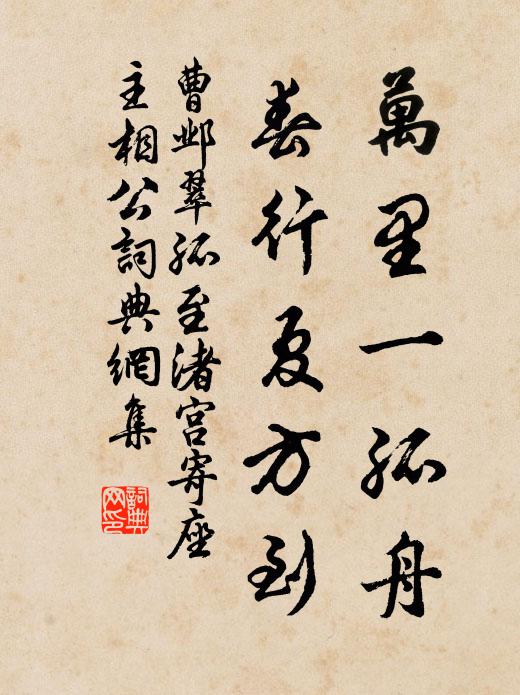 萬里一孤舟
春行夏方到
曹鄴翠孤至渚宫寄座
主相公詞典網集
詞典网印